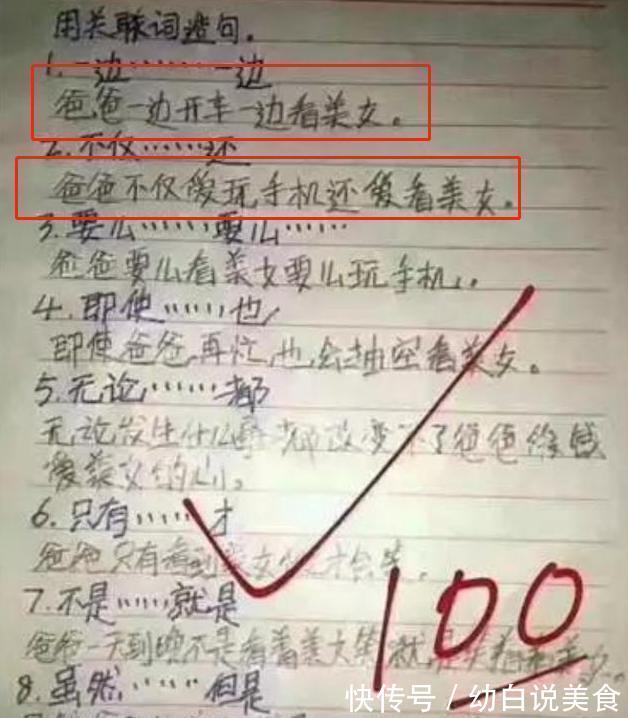 用关联词造句。
1.一边………一边
爸爸一边开车一边看美女。
2.不仅……还
爸爸不仅爱玩手机还爱看美女。
3.要么……要么……
爸爸要么看美女要么玩手机。
4.即使……也
即使爸爸再忙,也会抽空看美女。
5.无论……都
无论发生什么事都改变不了爸爸
爱美女的心。
6.只有……才
爸爸只有看到美女才会笑。
7.不是……就是
爸爸一天到晚不是看着美
8.虽然……但是
100
快传号/幼白说美食